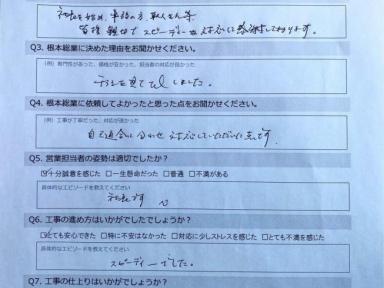 社長を始め、事務の方、職人さん等
皆様親切でスピーディーな対応に感謝しております。
Q3. 根本総業に決めた理由をお聞かせください。
(例) 専門性があった、価格が安かった、担当者の対応が良かった
チラシを見てTELしました。
Q4. 根本総業に依頼してよかったと思った点をお聞かせください。
(例) 工事が丁寧だった、対応が良かった
自己都合に合わせ対応していただいた点です。
Q5. 営業担当者の姿勢は適切でしたか?
☑十分誠意を感じた □一生懸命だった □普通 □不満がある
具体的なエピソードを教えてください
社長です
Q6. 工事の進め方はいかがでしたでしょうか?
☑とても安心できた □特に不安はなかった □対応に少しストレスを感じた □とても不満を感じた
具体的なエピソードを教えてください
スピーディーでした。
Q7. 工事の仕上りはいかがでしょうか?